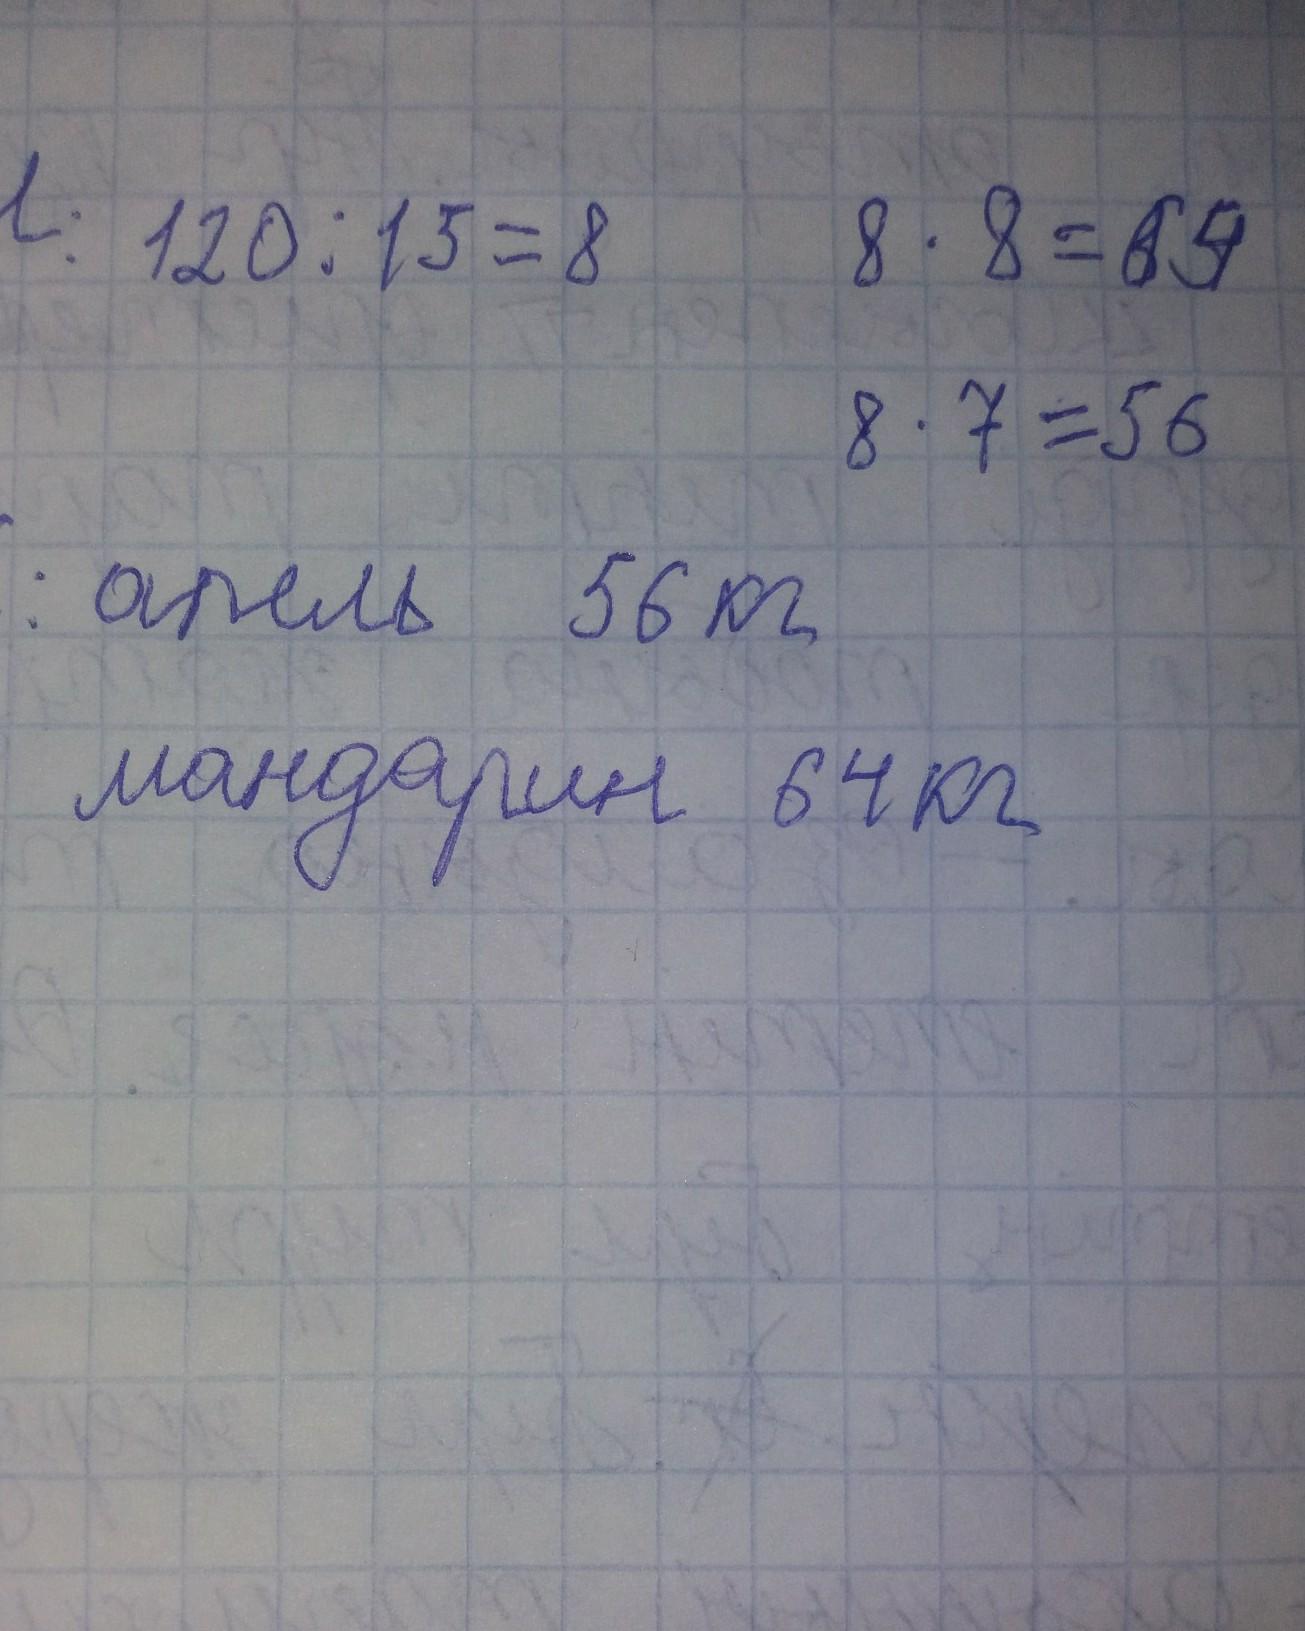 120:15=8 8·8=64
8·7=56
: апель 56 кг
мандарин 64 кг